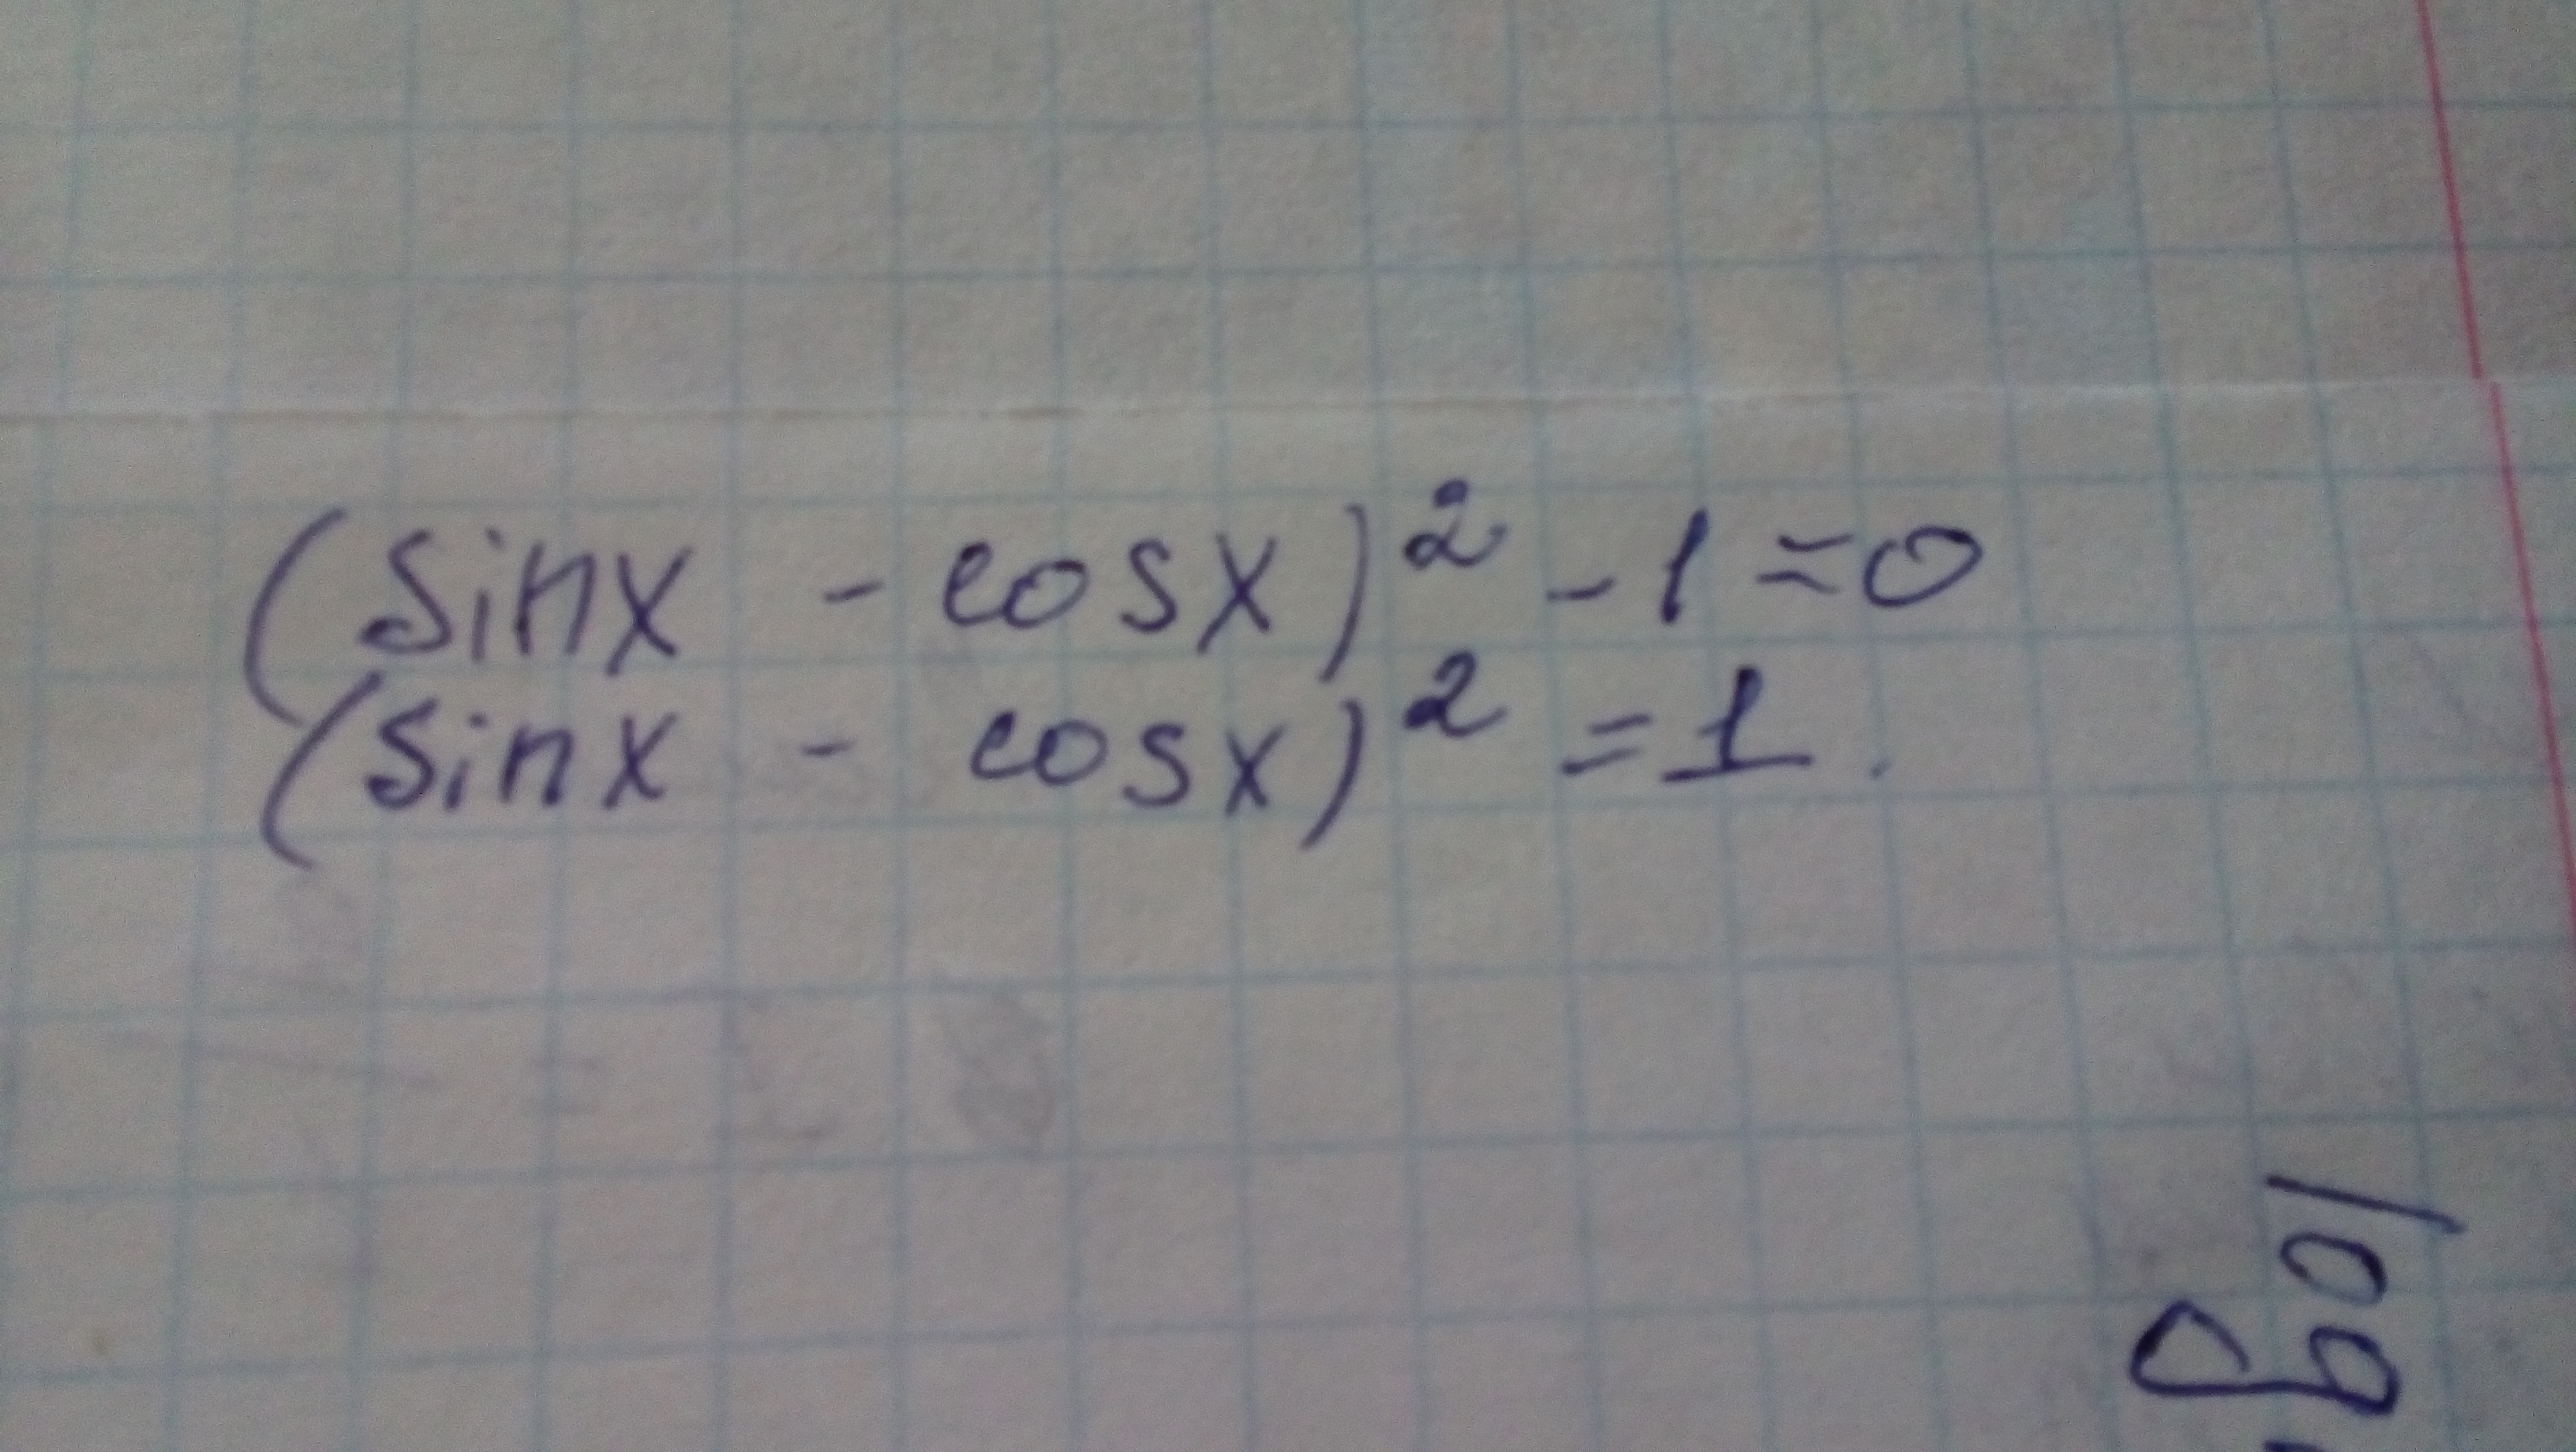 (sinx - cosx)² - 1 = 0
(sinx - cosx)² = 1.
log